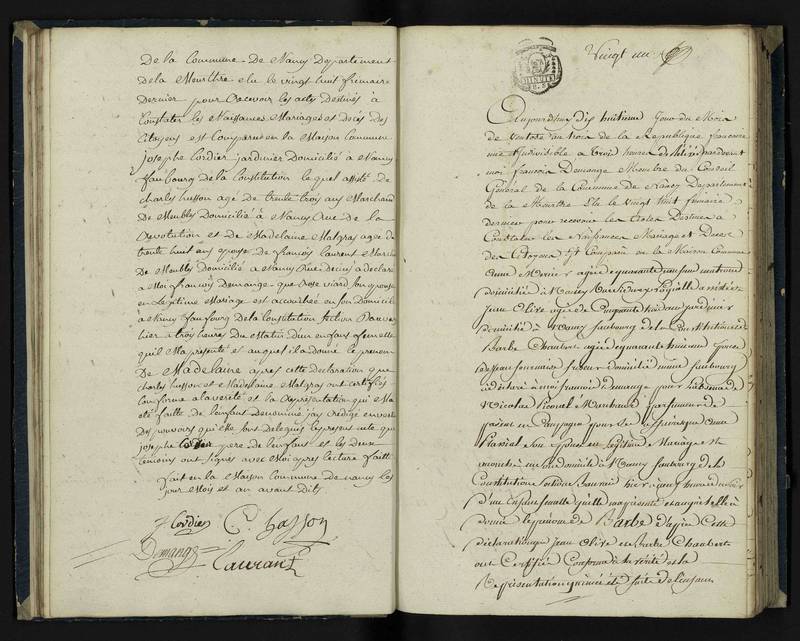 De la Commune De Nancy Departement
de la Meurthe elu le vingt huit frimaire
dernier pour recevoir les actes Destinés à
Constater les Naissances Mariages et Décés Des
Citoyens est Comparu en la Maison Commune
joseph Cordier jardinier Domicilié à Nancy
faubourg De la Constitution lequel assisté De
charles husson agé de trente trois ans Marchand
De Meubles Domicilié à Nancy Rue De la
Revolution et De Madelaine Malgras agée de
trente huit ans epouse de françois laurent March
De Meubles domicilié a Nancy Rue a declaré
a Moi françois Demange que Rose viard son epouse
en legitime Mariage est accouchée en son Domicile
a Nancy faubourg De la Constitution section
hier à trois heures Du Matin d'un enfant femelle
qu'il M'a presenté et auquel il a donné le prenom
De Madelaine apres cette Declaration que
charles husson et Madelaine Malgras ont certifié
Conforme a la verité et la representation qui M'a
eté faitte De l'enfant denommé j'ai redigé en vertu
Des pouvoirs qui Me sont Delegués le present acte que
joseph Cordier pere de l'enfant et les Deux
temoins ont signés avec Moi apres lecture faitte
fait en la Maison Commune de nancy les
jour Mois et an avant Dits
J Cordier C. husson
Demange Laurant
Vingt un
Aujourd'hui dix huitieme Jour du Mois
de Ventose an trois de la Republique francaise
une et Indivisible a trois heures de relevée pardevant
moi francois Demange Membre du Conseil
Général de la Commune de Nancy Departement
de la Meurthe Elu le vingt huit frimaire
dernier pour recevoir les Actes Destinés a
Constater les Naissances Mariages et Deces
des Citoyens Est Comparu en la Maison Commune
Anne Monier agée de quarante
domiciliée à Nancy assistée de
Jean Olive agé de Cinquante ans jardinier
domicilié à Nancy faubourg de la Constitution et de
Barbe Chaubert agée de quarante huit ans Epouse
de Jean domicilié même faubourg
a declaré à moi francois Demange que
Nicolas
present en Campagne pour le de la Republique
son Epouse en legitime Mariage est
accouchée en son domicile à Nancy faubourg de la
Constitution section hier a cinq heures du soir
d'un Enfant femelle qu'elle m'a presenté et auquel elle a
donné le prénom de Barbe d'après Cette
déclaration que Jean Olive et Barbe Chaubert
ont Certifiée Conforme à la vérité et la
Représentation qui m'a été faite de l'enfant